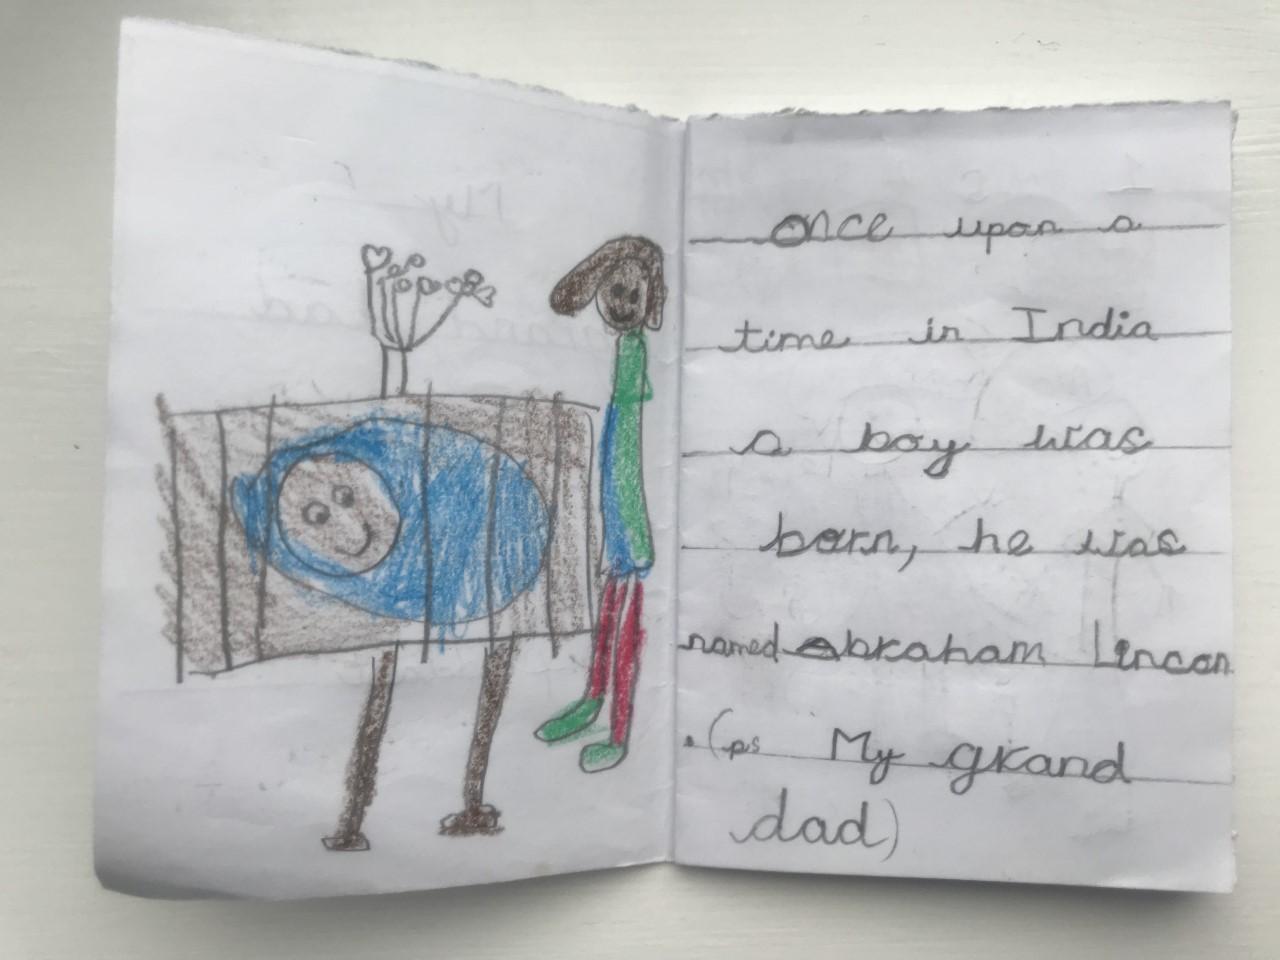 once upon a
time in India
a boy was
born, he was
named Abraham Lincon
.(ps My grand
dad)